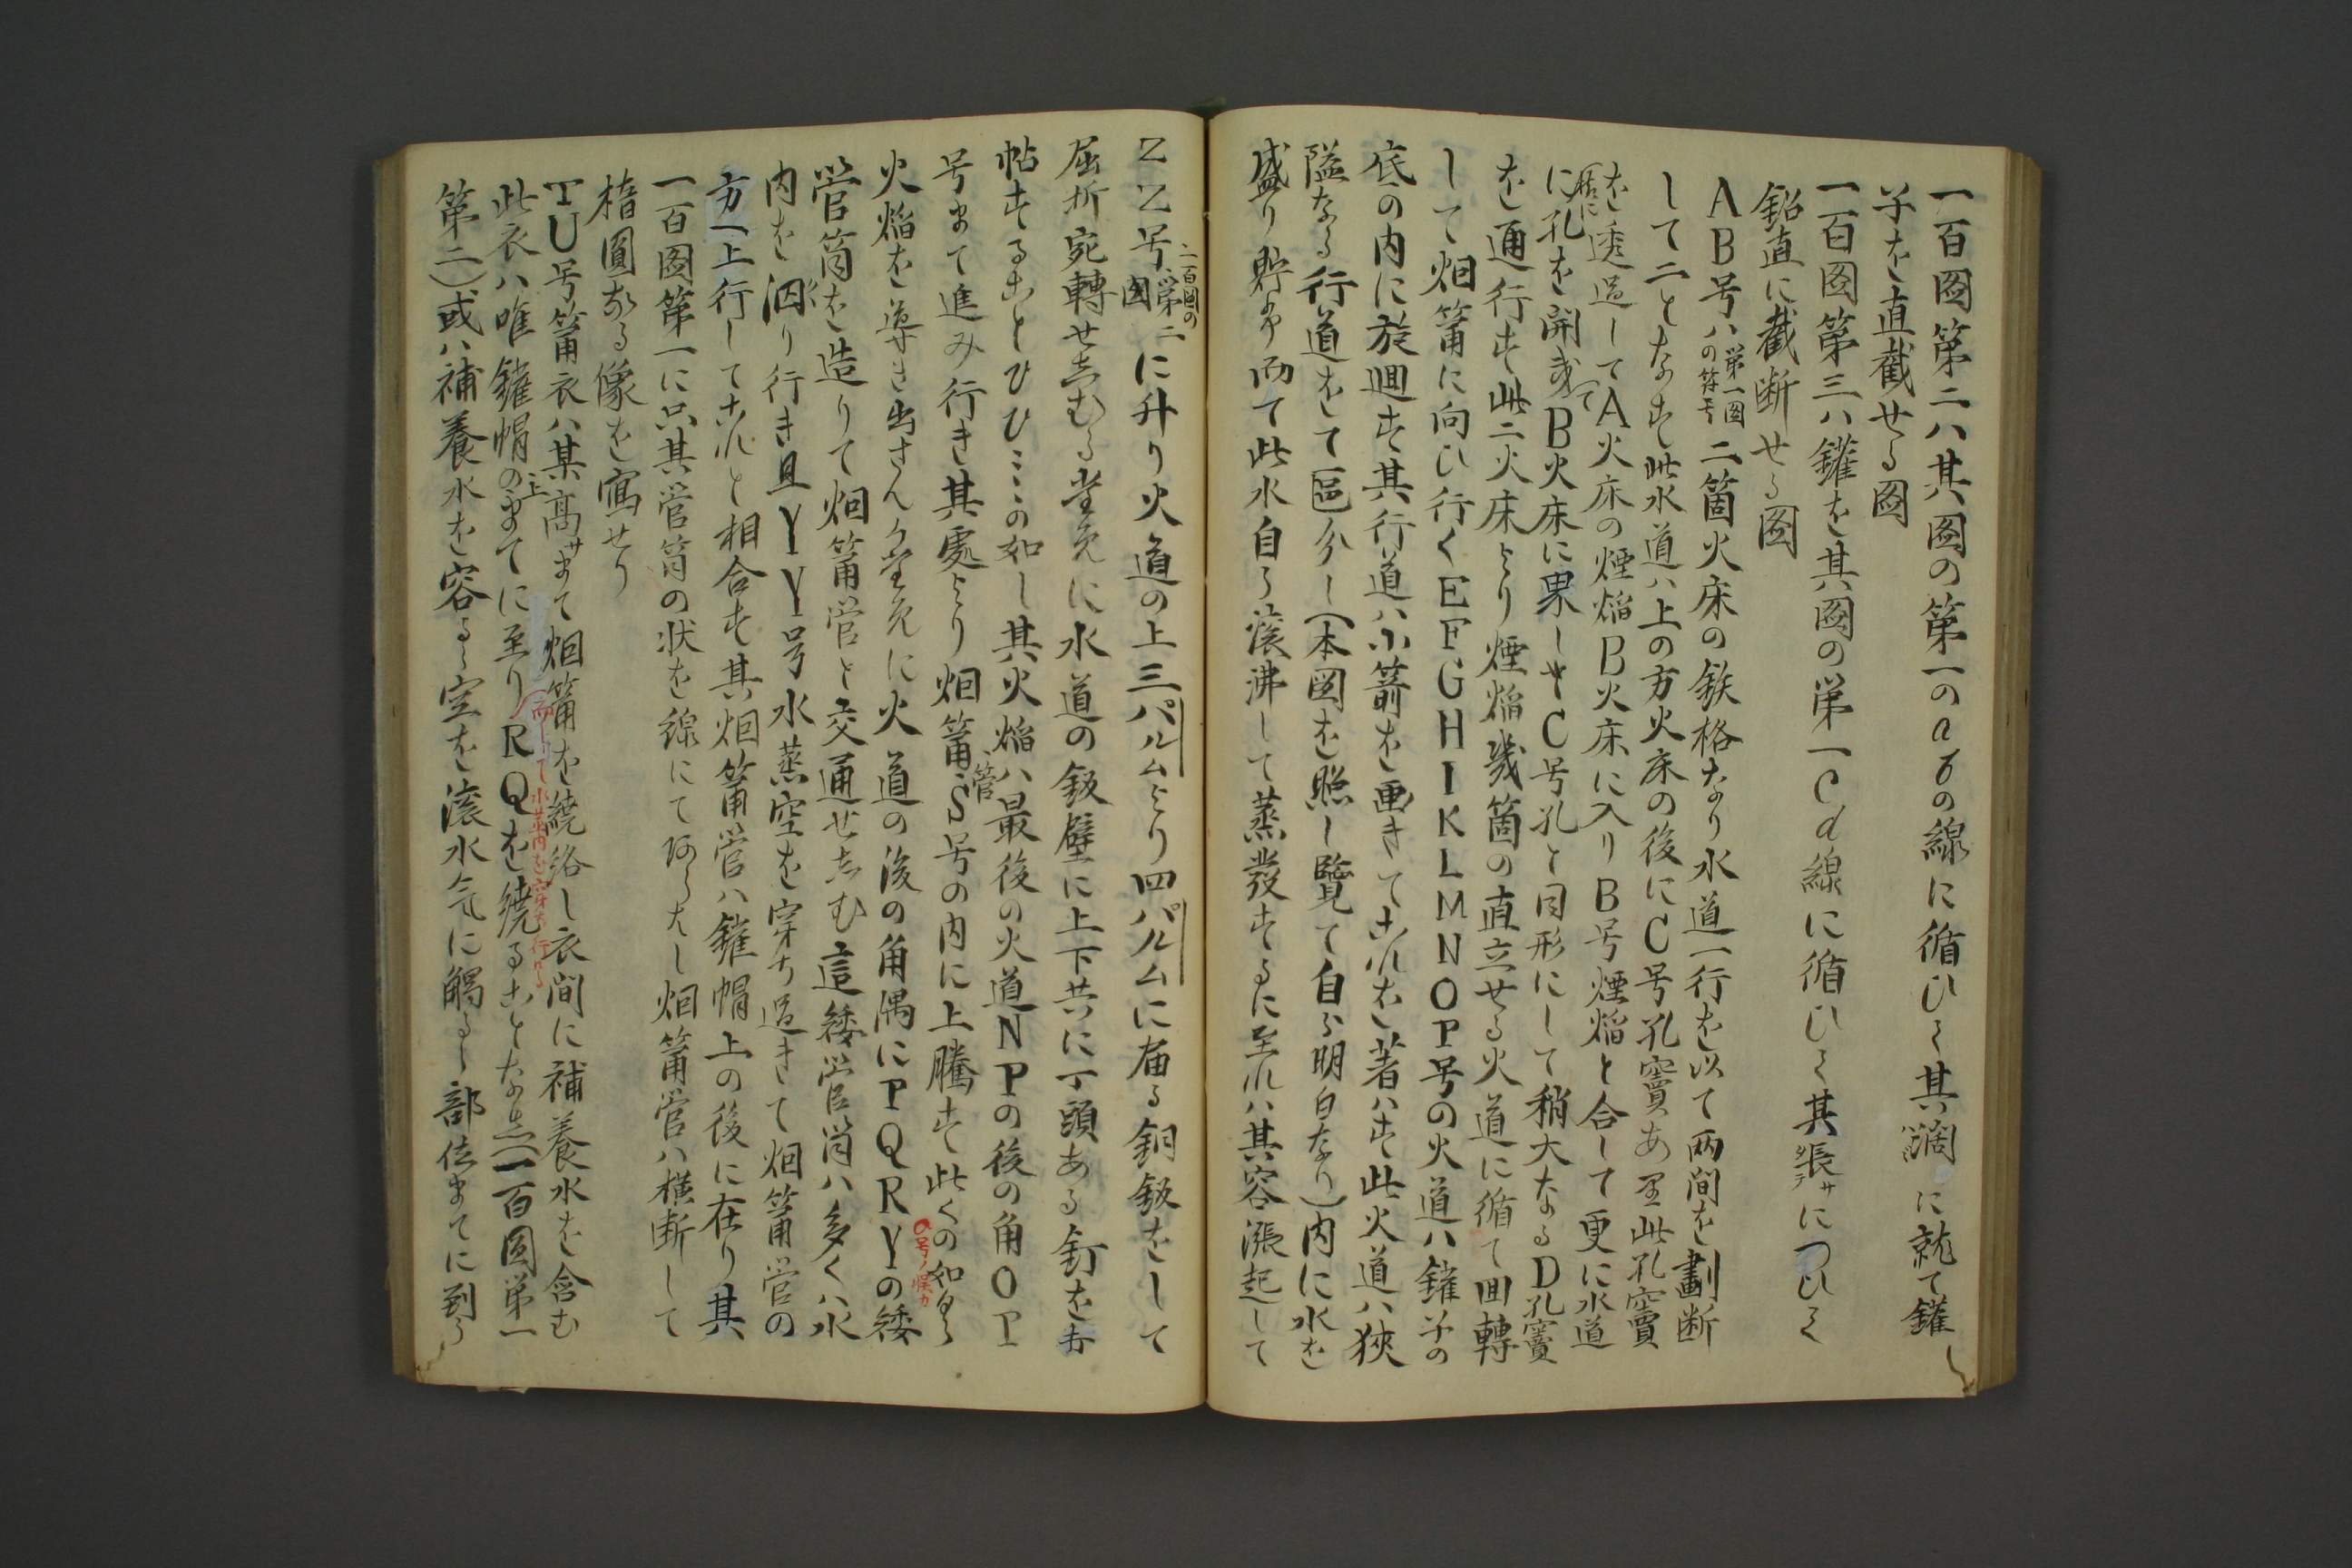 一百圖第二ハ其圖の第一のabの線に循ひて其濶に就て鑵
子を直截せる圖
一百圖第三ハ鑵を其圖の第一cd線に循ひて其張サにつひて
鉛直に截断せる圖
AB号ハ第一圖の符号二箇火床の鉄格なり水道一行を以て両間を劃断
して二となす此水道ハ上の方火床の後にC号孔竇あり此孔竇
を透過してA火床の煙焔B火床に入りB号煙焔と合して更に水道
に孔を開てB火床に畢しサC号孔と同形にして稍大なるD孔竇
を通行す此二火床より煙焔幾箇の直立せる火道に循て囬轉
して烟筩に向ひ行くEFGHIKLMNOP号の火道ハ鑵子の
底の内に旋廻す其行道ハ小箭を画きてこれを著ハす此火道ハ狭
隘なる行道をして區分し(本図を照し覽て自ら明白なり)内に水を
盛り貯め而て此水自ら滾沸して蒸發するに至れハ其容漲起して
ZZ号一百圖の第二圖に升り火道の上三パルムより四パルムに届る銅鈑をして
屈折宛轉せしむる為に水道の鈑壁に上下共に丁頭ある釘を
帖することひひ〻〻の如し其火焔ハ最後の火道NPの後の角OP
号まて進み行き其處より烟筩管S号の内に上騰す此くの如く
火焔を導き出さんか為に火道の後の角隅にPQRYの矮
管筒を造りて烟筩管と交通せしむ這矮管筒ハ多くハ水
内を泅り行き且YY号水蒸空を穿ち過きて烟筩管の
方へ上行してこれと相合す其烟筩管ハ鑵帽上の後に在り其
一百図第一に只其管筒の状を線にてあらハし烟筩管ハ横断して
楕圓なる像を寫せり
TU号筩衣ハ某高サまて烟筩を繞絡し衣間に補養水を含む
此衣ハ唯鑵帽の上まてに至りRQを繞ることなし(一百圖第一
第二)或ハ補養水を容る室を滾水气に觸る部位まてに到る